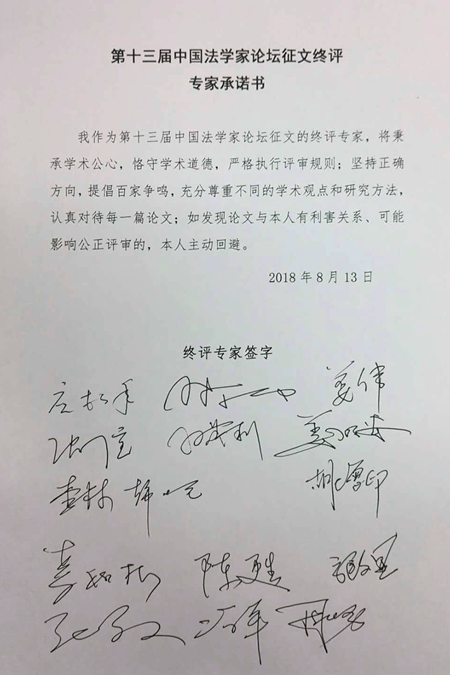 第十三届中国法学家论坛征文终评
专家承诺书
我作为第十三届中国法学家论坛征文的终评专家，将秉
承学术公心，恪守学术道德，严格执行评审规则；坚持正确
方向，提倡百家争鸣，充分尊重不同的学术观点和研究方法，
认真对待每一篇论文；如发现论文与本人有利害关系、可能
影响公正评审的，本人主动回避。
2018 年 8 月 13 日
终评专家签字
姜伟
胡云腾
陈甦